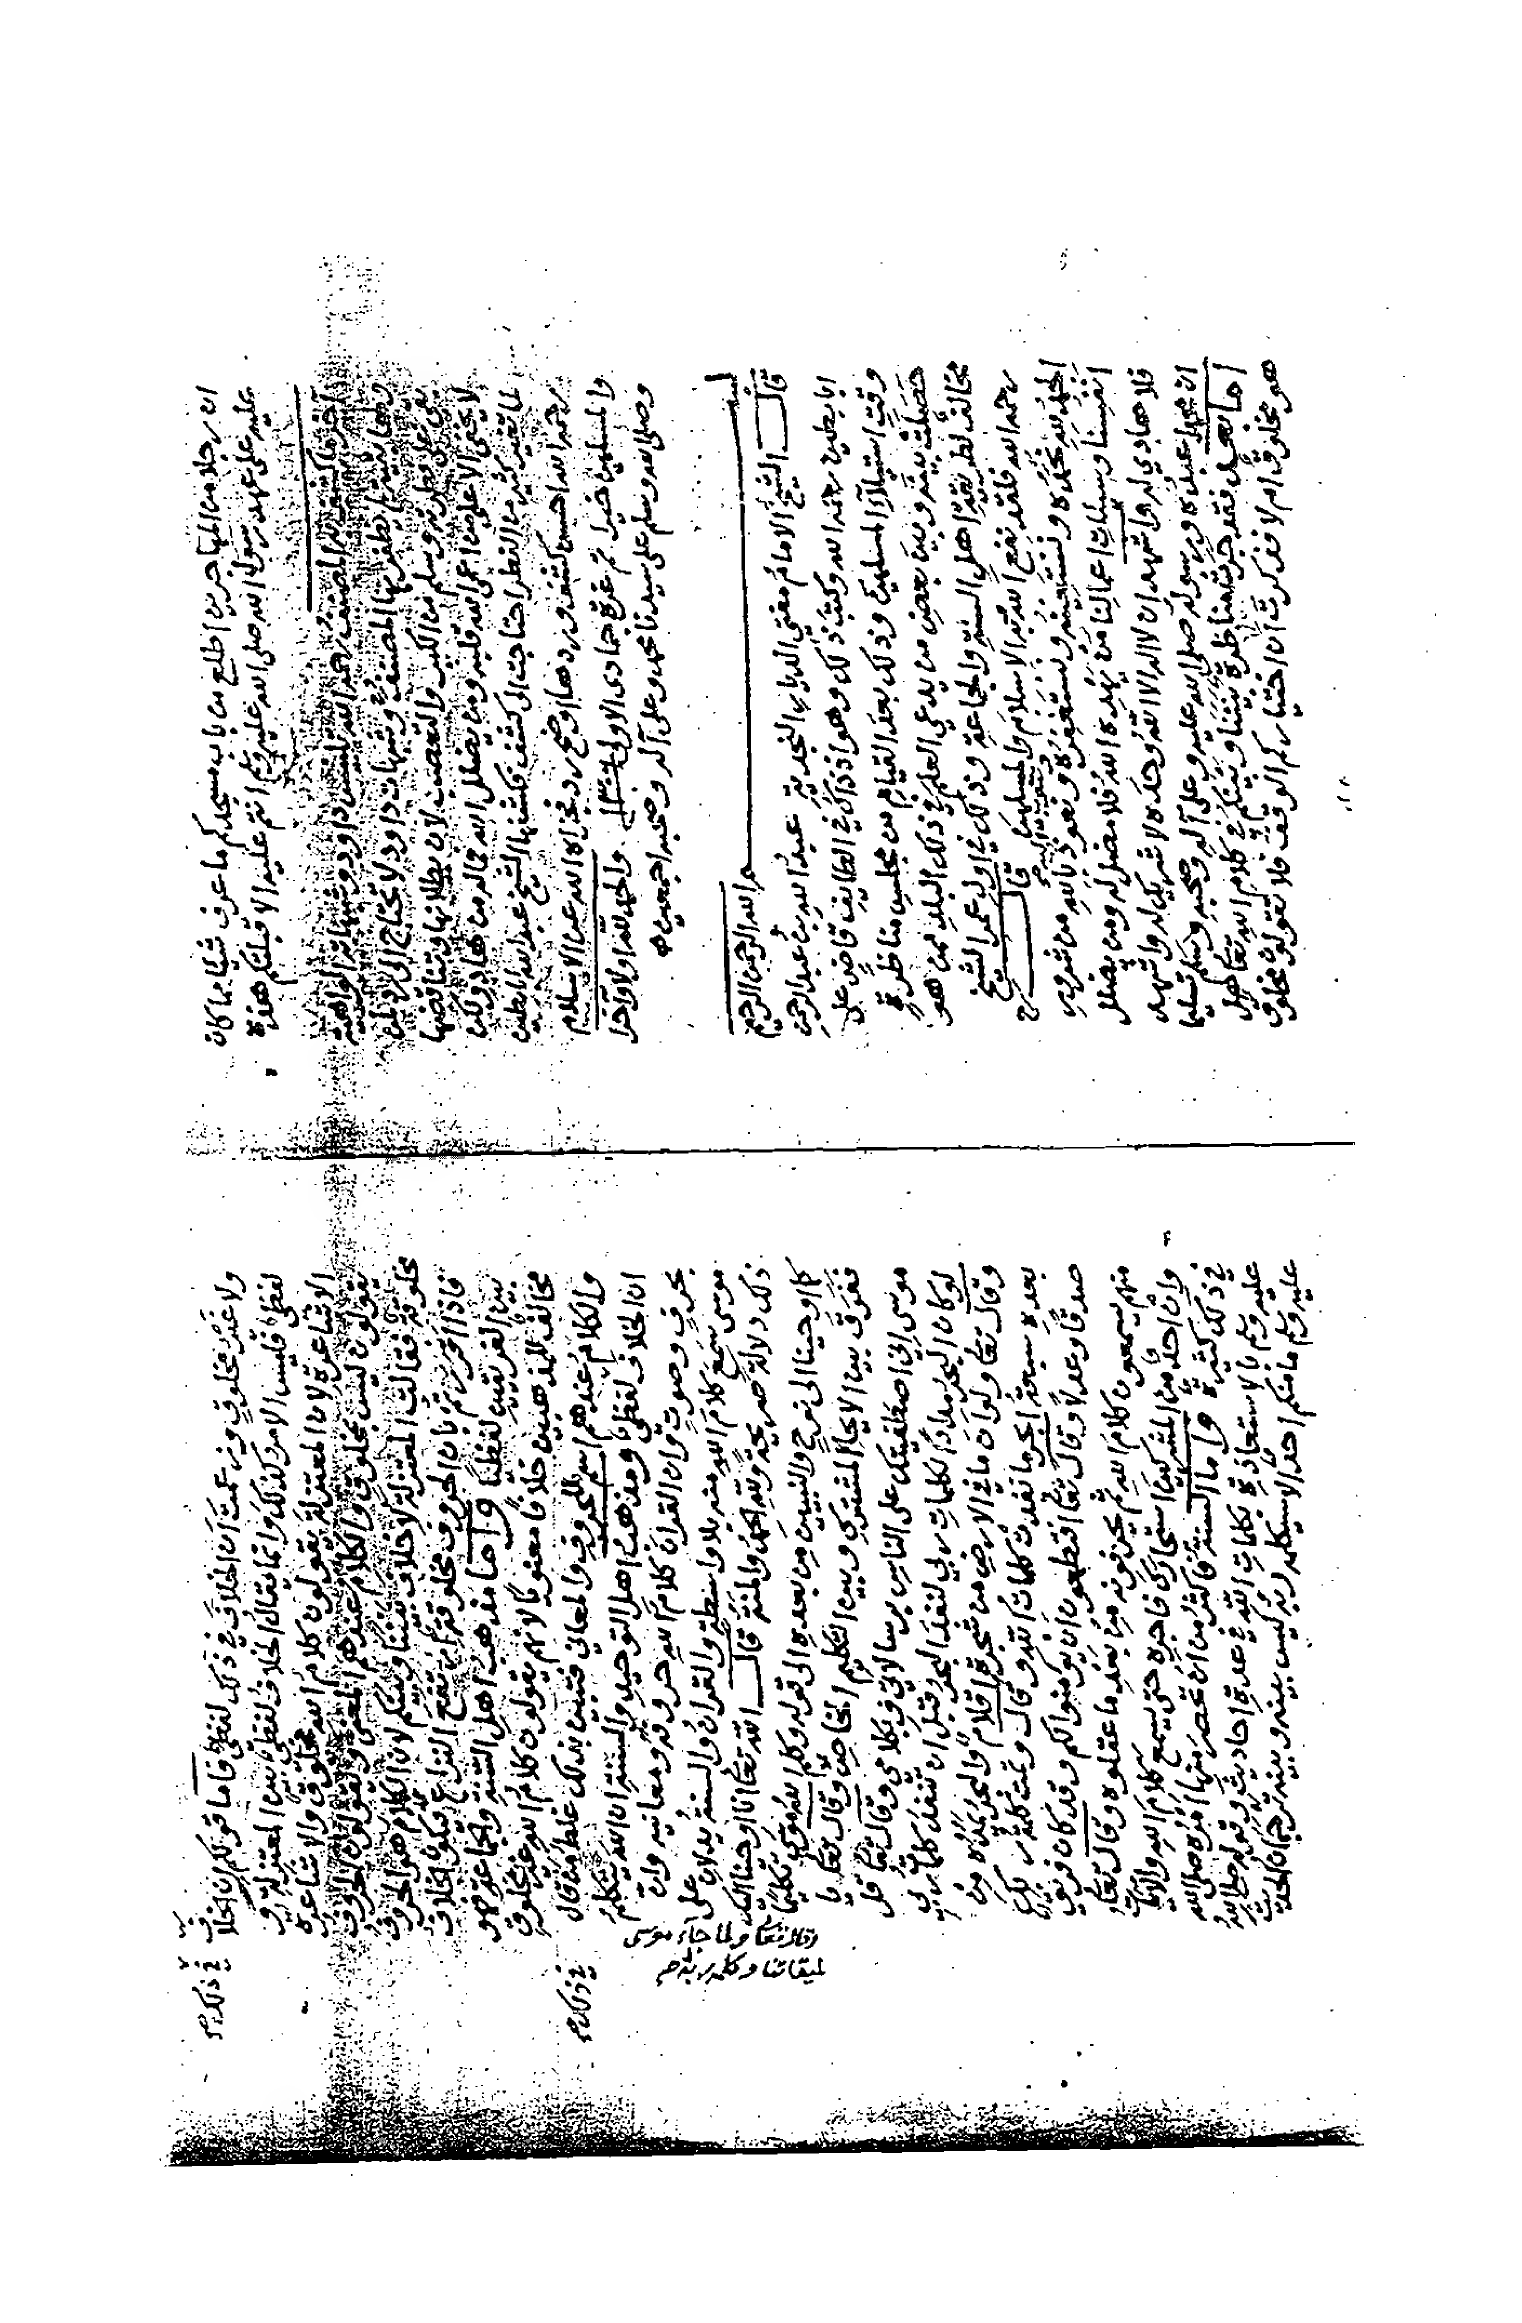 ان رجلا من المهاجرين اطلع من باب مسجدكم ما عرف شيئا مما كان
عليه على عهد رسول الله صلى الله عليه وسلم انتم عليه الا قبلتكم هذه
آخر ما كشف به المصنف رحمه الله تلبيس داود وشبهاته الواهية
وبقيت لم يظفر بها المصنف وشبهات داود لا تحتاج الى رد لمن
بقي على فطرته وسلم من الكبر والتعصب لان بطلانها وتناقضها
لا يخفى الا على من اعمى الله قلبه ومن يضلل الله فما له من هاد ولكن
لما تغير كثير من الفطر احتاجت الى كشف فكشفها الشيخ عبد الله ابا بطين
رحمه الله احسن كشف وردها اوضح رد فجزاه الله عن الاسلام
والمسلمين خيرا تم غرة جمادى الاولى والحمد لله اولا وآخرا
وصلى الله وسلم على سيدنا محمد وعلى آله وصحبه اجمعين
بسم الله الرحمن الرحيم
قال الشيخ الامام مفتي الديار النجدية عبد الله بن عبد الرحمن
ابا بطين رحمه الله وكتب ذلك وهو اذ ذاك في الطايف قاض على
وقت استيلاء المسلمين وذلك بعد القيام من مجلس مناظرة
حصلت بينه وبين بعض من يدعي العلم في ذلك البلد ممن هو
مخالف لطريقة اهل السنة والجماعة وذلك في اول عمر الشيخ
رحمه الله فلقد نفع الله به الاسلام والمسلمين قال الشيخ
الحمد لله نحمده ونستعينه ونستغفره ونعوذ بالله من شرور
انفسنا وسيئات اعمالنا من يهده الله فلا مضل له ومن يضلل
فلا هادي له واشهد ان لا اله الا الله وحده لا شريك له واشهد
ان محمدا عبده ورسوله صلى الله عليه وعلى آله وصحبه وسلم تسليما
اما بعد فقد جرت مناظرة بيننا وبينكم في كلام الله تعالى هل
هو مخلوق ام لا فذكرت ان اختياركم الوقف فلا تقولون مخلوق
ولا غير مخلوق وزعمت ان الخلاف في ذلك لفظي فاما قولكم ان الخلاف في ذلك
لفظي فليس الامر كذلك وانما يقال الخلاف لفظي بين المعتزلة و
الاشاعرة لان المعتزلة يقولون كلام الله مخلوق والاشاعرة
يقولون ليس بمخلوق والكلام عندهم المعنى ويقولون الحروف
مخلوقة فقالت المعتزلة لا خلاف بيننا وبينكم لان الكلام هو الحروف
فاذا اقررتم بان الحروف مخلوقة ارتفع النزاع فيكون الخلاف
بين الفريقين لفظيا واما مذهب اهل السنة والجماعة فهو
مخالف للمذهبين خلافا معنويا لانهم يقولون كلام الله غير مخلوق
والكلام عندهم اسم للحروف والمعاني فتبين بذلك غلط من قال في ذلك
ان الخلاف لفظي ومذهب اهل التوحيد والسنة ان الله يتكلم
بحرف وصوت وان القرآن كلام الله حروفه ومعانيه وان
موسى سمع كلام الله منه بلا واسطة والقرآن والسنة يدلان على
ذلك دلالة صريحة ولله الحمد والمنة قال الله تعالى انا اوحينا اليك
كما اوحينا الى نوح والنبيين من بعده الى قوله وكلم الله موسى تكليما وقال تعالى ولما جاء موسى
لميقاتنا وكلمه ربه
ففرق بين الايحاء المشترك وبين التكليم الخاص وقال تعالى يا
موسى اني اصطفيتك على الناس برسالاتي وبكلامي وقال تعالى قل
لو كان البحر مدادا لكلمات ربي لنفد البحر قبل ان تنفد كلمات ربي
وقال تعالى ولو ان ما في الارض من شجرة اقلام والبحر يمده من
بعده سبعة ابحر ما نفدت كلمات الله وقال وتمت كلمة ربك
صدقا وعدلا وقال تعالى افتطمعون ان يؤمنوا لكم وقد كان فريق
منهم يسمعون كلام الله ثم يحرفونه من بعد ما عقلوه وقال تعالى
وان احد من المشركين استجارك فاجره حتى يسمع كلام الله والآيات
في ذلك كثيرة واما السنة فاكثر من ان تحصر منها امره صلى الله
عليه وسلم بالاستعاذة بكلمات الله في عدة احاديث وقوله صلى الله
عليه وسلم ما منكم احد الا سيكلمه ربه ليس بينه وبينه ترجمان الحديث